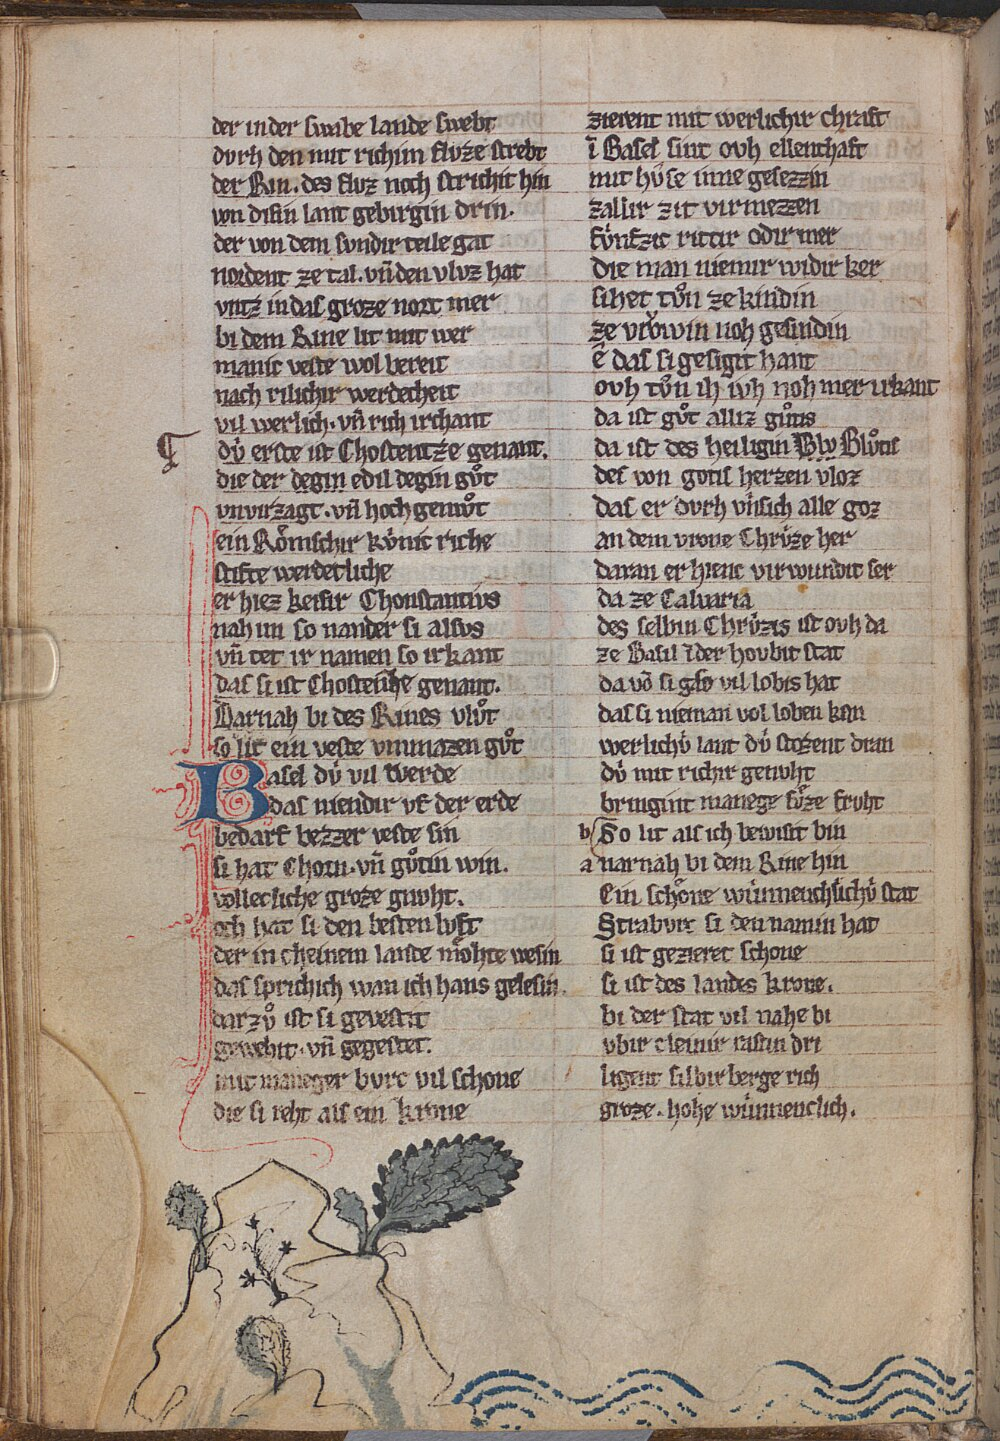 der in der swabe lande swebt
dvrh den mit richim fluze strebt
der Rin. des fluz noch strichit hin
von disin lant gebirgin drin.
der von dem svndir teile gat
nordent ze tal. vn̄ den vluz hat
vntz in das groze nort mer
bi dem Rine lit mit wer
manic veste wol bereit
nach rilichir werdecheit
vil werlich. vn̄ rich irchant
¶ dv́ erste ist Chostentze genant.
die der degin edil degin gůt
vnvirzagt. vn̄ hoch gemůt
ein Römschir kv́nic riche
stifte werdecliche
er hiez keisir Chonstantivs
nah im so nander si alsvs
vn̄ tet ir namen so irkant
das si ist Chostentze genant.
Darnah bi des Rines vlůt
so lit ein veste vnmazen gůt
Basel dv́ vil werde
das niendir vf der erde
bedarf bezzer veste sin
si hat Chorn. vn̄ gůtin win.
vollecliche groze gnuht.
och hat si den besten luft
der in cheinem lande möhte wesin
das sprich ich wan ich hans gelesin.
darzů ist si gevestit
gewehit. vn̄ gegestet.
mit maneger burc vil schone
die si reht als ein krone
zierent mit werlichir chraft
ī Basel sint ovh ellenthaft
mit hv́se inne gesezzin
zallir zit virmezzen
fv́nfzic rittir odir mer
die man niemir widir ker
sihet tůn ze kindin
ze vrŏwin noh gesindin
ē das si gesigit hant
ovh tůn ih ivh noh mer irkant
da ist gůt alliz gůtis
da ist des heiligin Blv Blůtis
des von gotis herzen vloz
das er dvrh vnsich alle goz
an dem vrone Chrv́ze her
daran er hienc virwundit ser
da ze Calvaria
des selbin Chrv́zis ist ovh da
ze Basil ī der hovbit stat
da vō si gar vil lobis hat
das si nieman vol loben kan
werlichv́ lant dv́ stozent dran
dv́ mit richir genuht
bringint manege sv̂ze fruht
b So lit als ich bewisit bin
a narnah bi dem Rine hin
Ein schöne wúnnenchlichv́ stat
Strasburc si den namin hat
si ist gezieret schone
si ist des landes krone.
bi der stat vil nahe bi
vbir cleinir rastin dri
ligent silbir berge rich
groze. hohe wúnnenclich.